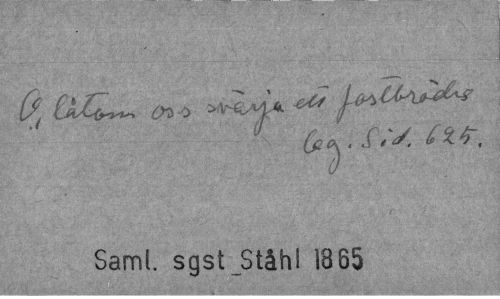 O, låtom oss svärja ett fostbrödra
lag. Sid. 625.
Saml. sgst Ståhl 1865